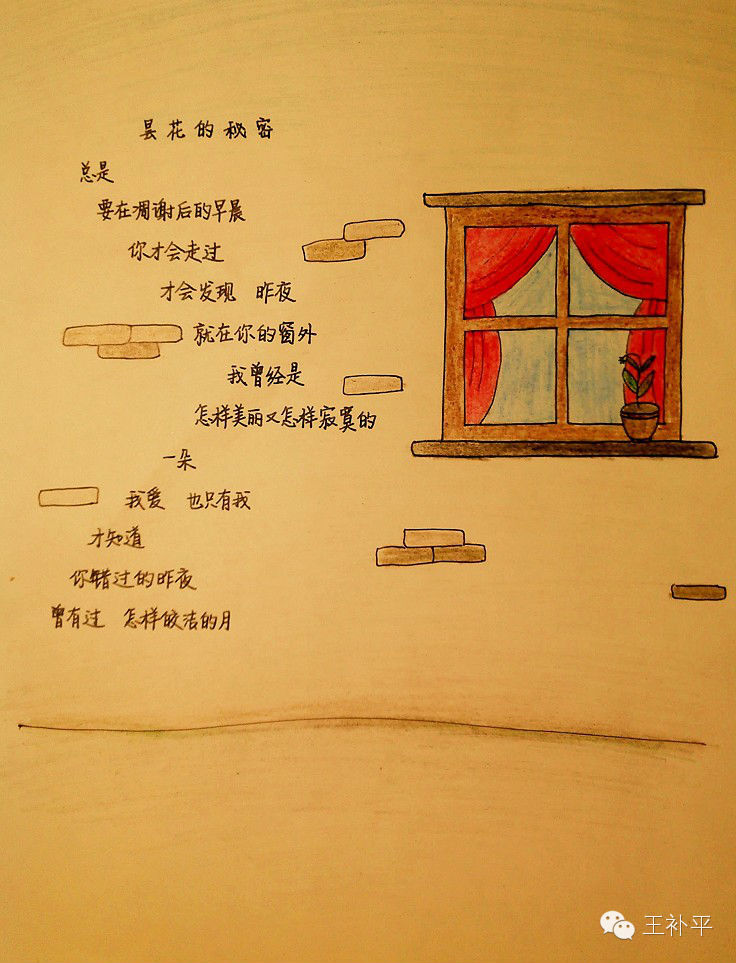 昙花的秘密
总是
要在凋谢后的早晨
你才会走过
才会发现　昨夜
就在你的窗外
我曾经是
怎样美丽又怎样寂寞的
一朵
我爱　也只有我
才知道
你错过的昨夜
曾有过　怎样皎洁的月
王补平